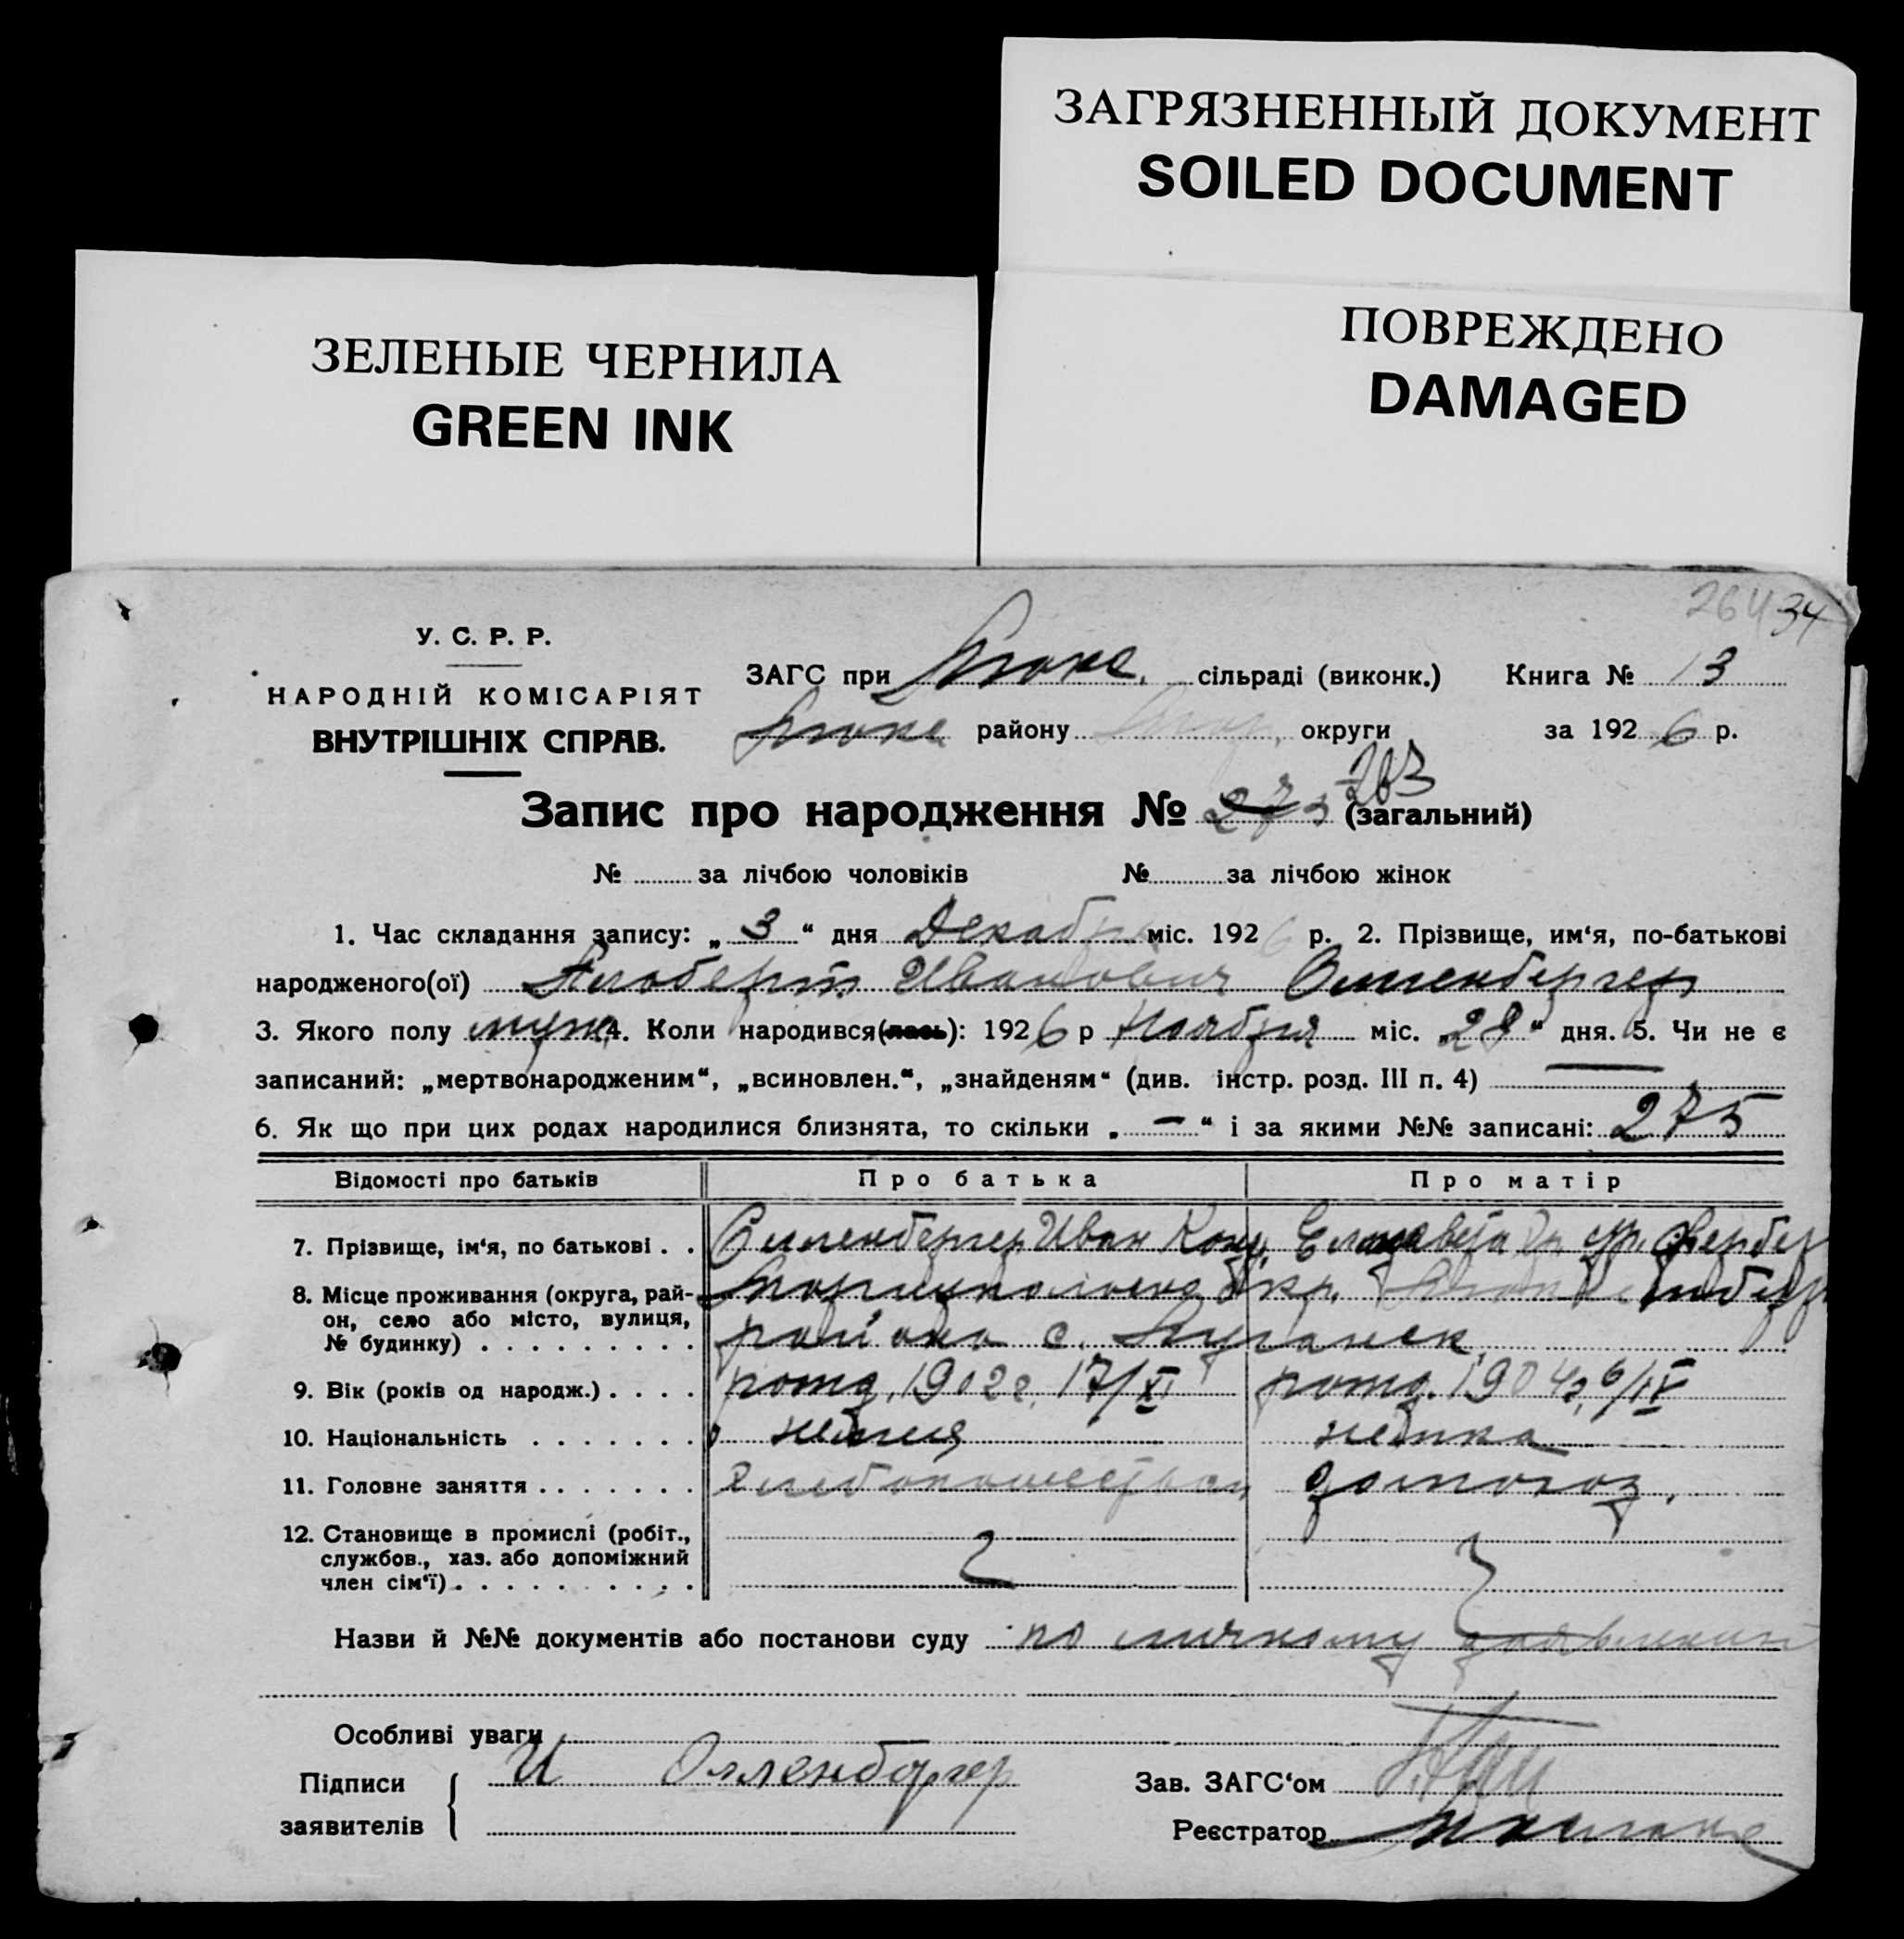 ЗАГРЯЗНЕННЫЙ ДОКУМЕНТ
SOILED DOCUMENT
ПОВРЕЖДЕНО
DAMAGED
ЗЕЛЕНЫЕ ЧЕРНИЛА
GREEN INK
264 34
У. С. Р. Р.
НАРОДНІЙ КОМІСАРІЯТ
ВНУТРІШНІХ СПРАВ.
ЗАГС при сільраді (виконк.) Книга № 13
району округи за 1926 р.
Запис про народження № 273 263 (загальний)
№ за лічбою чоловіків № за лічбою жінок
1. Час складання запису: „3“ дня Декабря міс. 1926 р. 2. Прізвище, им‘я, по-батькові
народженого(ої) Иванович Олленбергер
3. Якого полу муж 4. Коли народився(лась): 1926 р Ноября міс. „28“ дня. 5. Чи не є
записаний: „мертвонародженим“, „всиновлен.“, „знайденям“ (див. інстр. розд. III п. 4)
6. Як що при цих родах народилися близнята, то скільки „—“ і за якими №№ записані: 275
Відомості про батьків Про батька Про матір
7. Прізвище, ім‘я, по батькові . . Олленбергер Иван Конд. Елизавета ур. Фербер
8. Місце проживання (округа, рай-
он, село або місто, вулиця,
№ будинку) . . . . . . . . . района с. Луганск
9. Вік (років од народж.) . . . . рожд. 1902 г. 17/XI рожд. 1904 г. 6/IV
10. Національність . . . . . . . немец немка
11. Головне заняття . . . . . . . хлебопашество домохоз.
12. Становище в промислі (робіт.,
службов., хаз. або допоміжний
член сім‘ї) . . . . . . . . . .
Назви й №№ документів або постанови суду по личному заявлению
Особливі уваги
Підписи
заявителів И Олленбергер
Зав. ЗАГС‘ом
Реєстратор